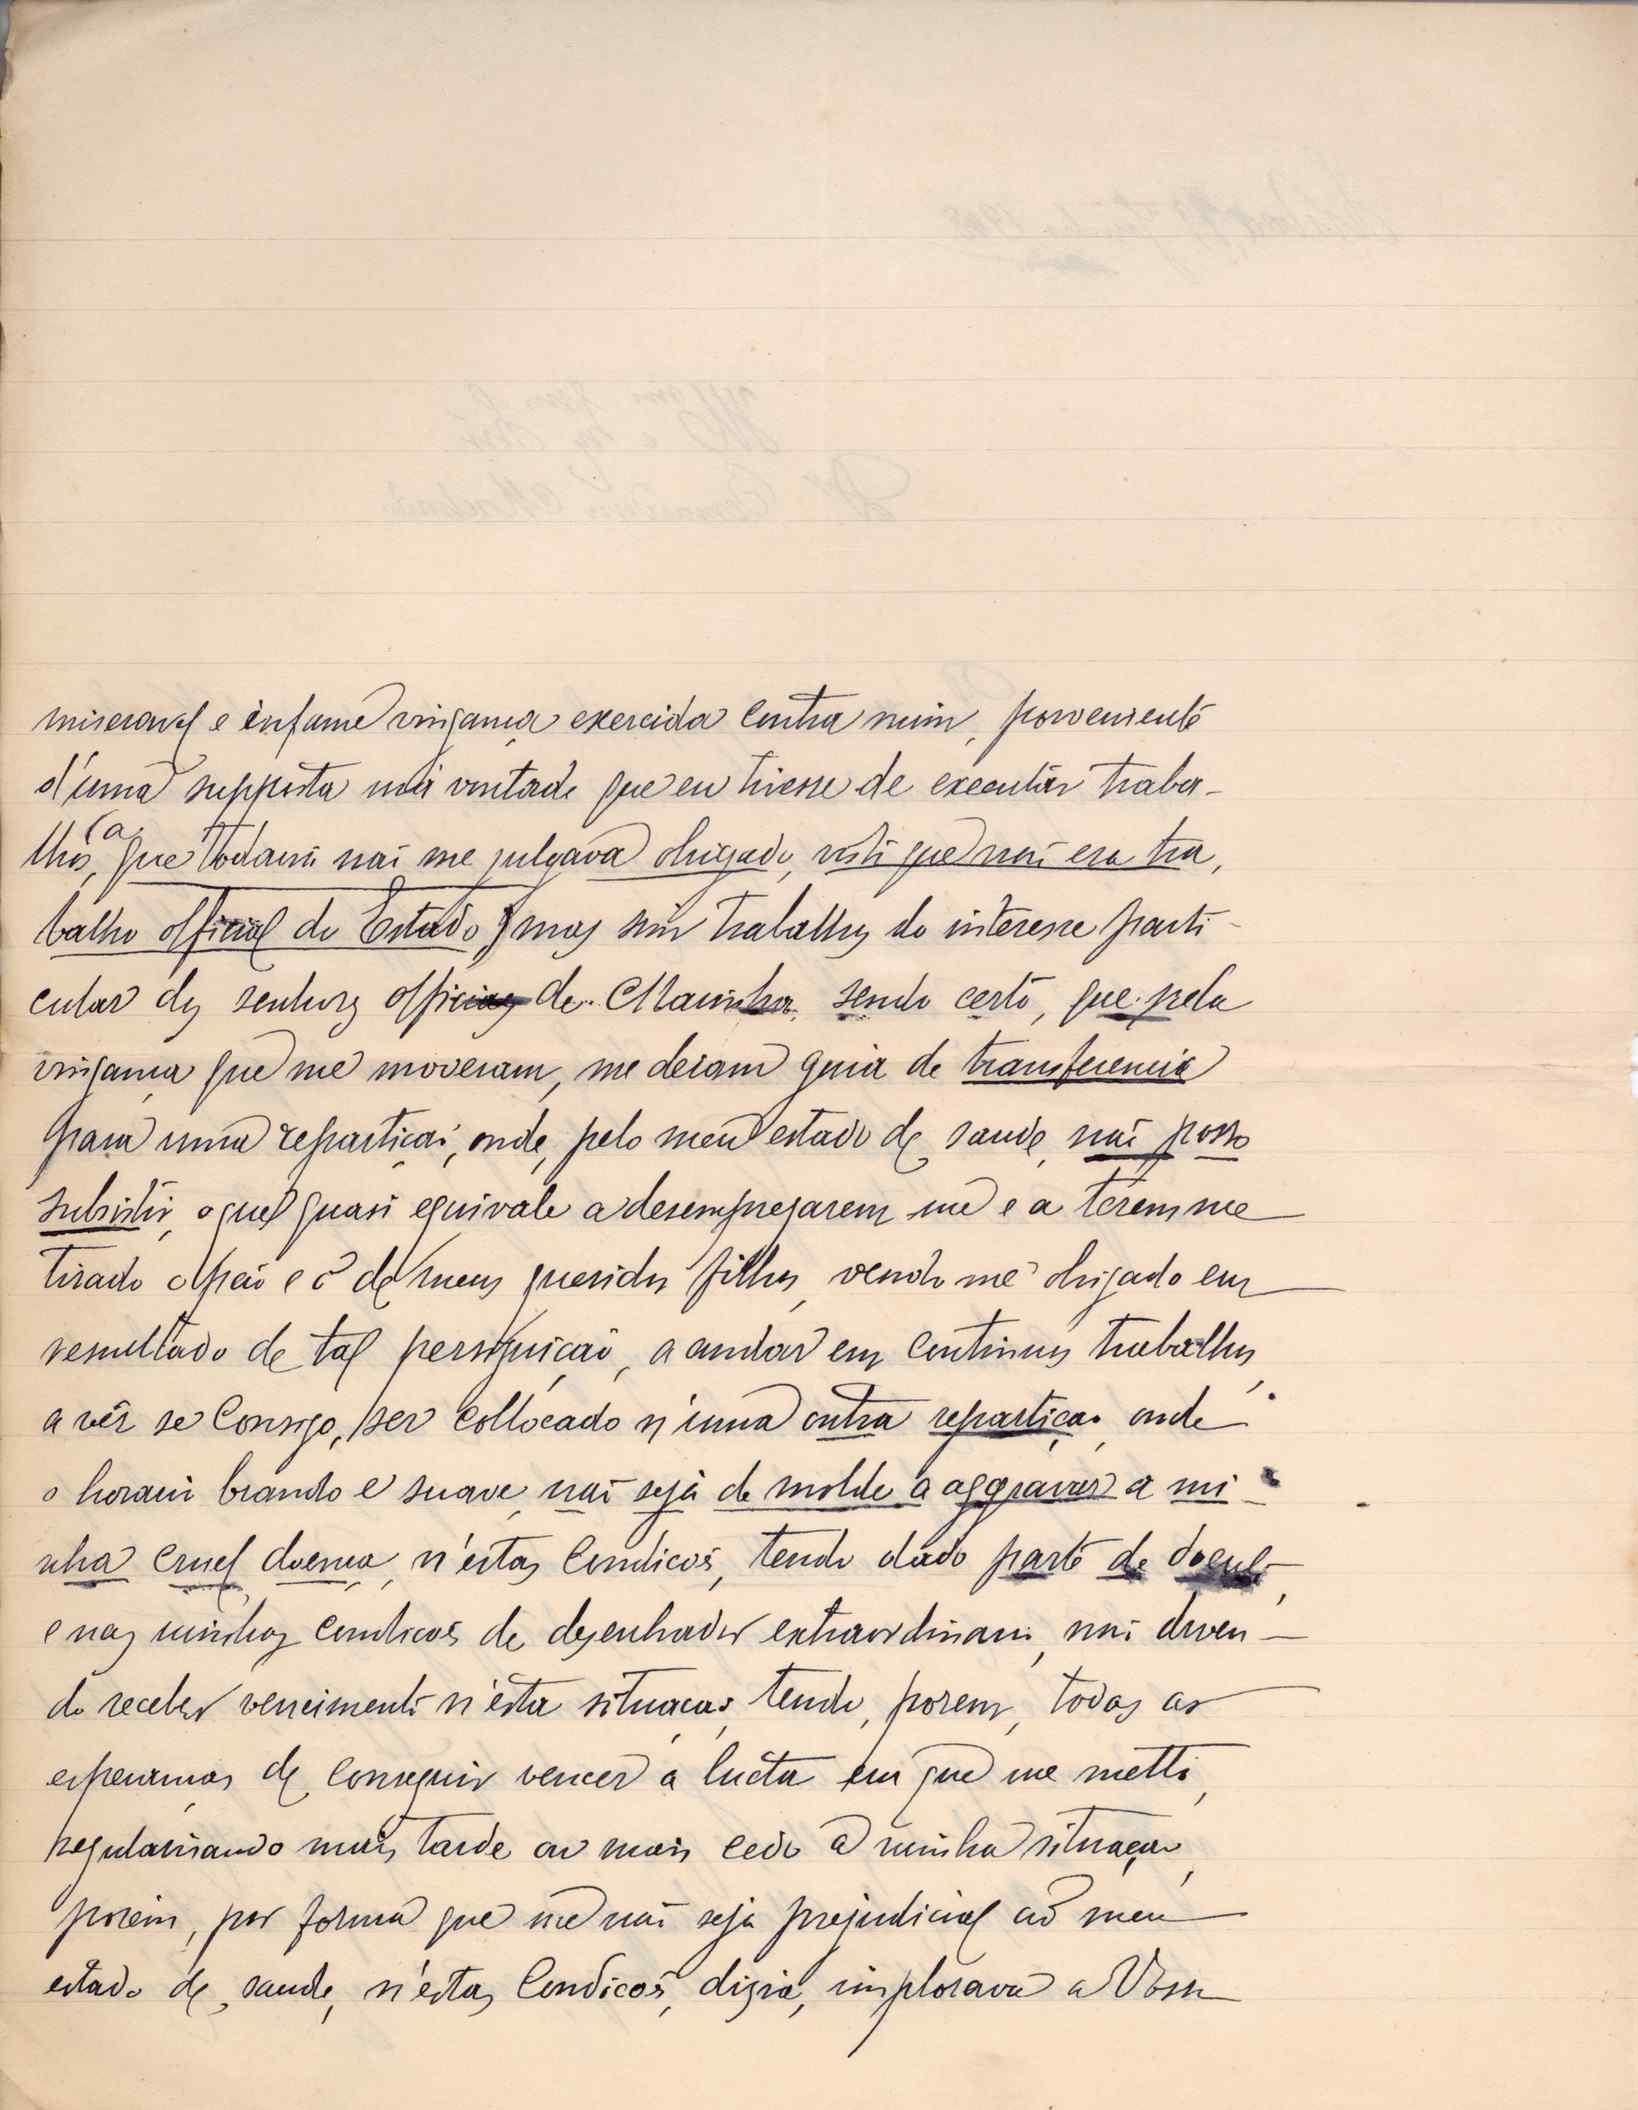 miseravel e infame vingança exercida contra mim, proveniente
d'uma supposta má vontade que eu tivesse de executar traba-
lhos, (a que todavia não me julgava obrigado, visto que não era tra,
balho official do Estado) mas sim trabalhos do interesse parti-
cular dos senhores officiaes de Marinha, sendo certo, que pela
vingança que me moveram, me deram guia de transferencia
para uma repartição, onde, pelo meu estado de saude, não posso
subsistir, o que quasi equivale a desempregarem me e a terem me
tirado o pão e o de meus queridos filhos, vendo me obrigado em
resultado de tal perseguição, a andar em continuos trabalhos,
a vêr se consigo, ser collocado n'uma outra repartição, onde
o horario brando e suave, não seja de molde a aggravar a mi-
nha cruel doença, n'estas condicões, tendo dado parte de doente,
e nas minhas condicões de desenhador extraordinario, não deven-
do receber vencimento n'esta situação, tendo, porem, todas as
esperanças de conseguir vencer a lucta em que me metti,
regularisando mais tarde ou mais cedo a minha situação,
porém, por forma que me não seja prejudicial ao meu
estado de saude, n'estas condicões, dizia, implorava a Vossa